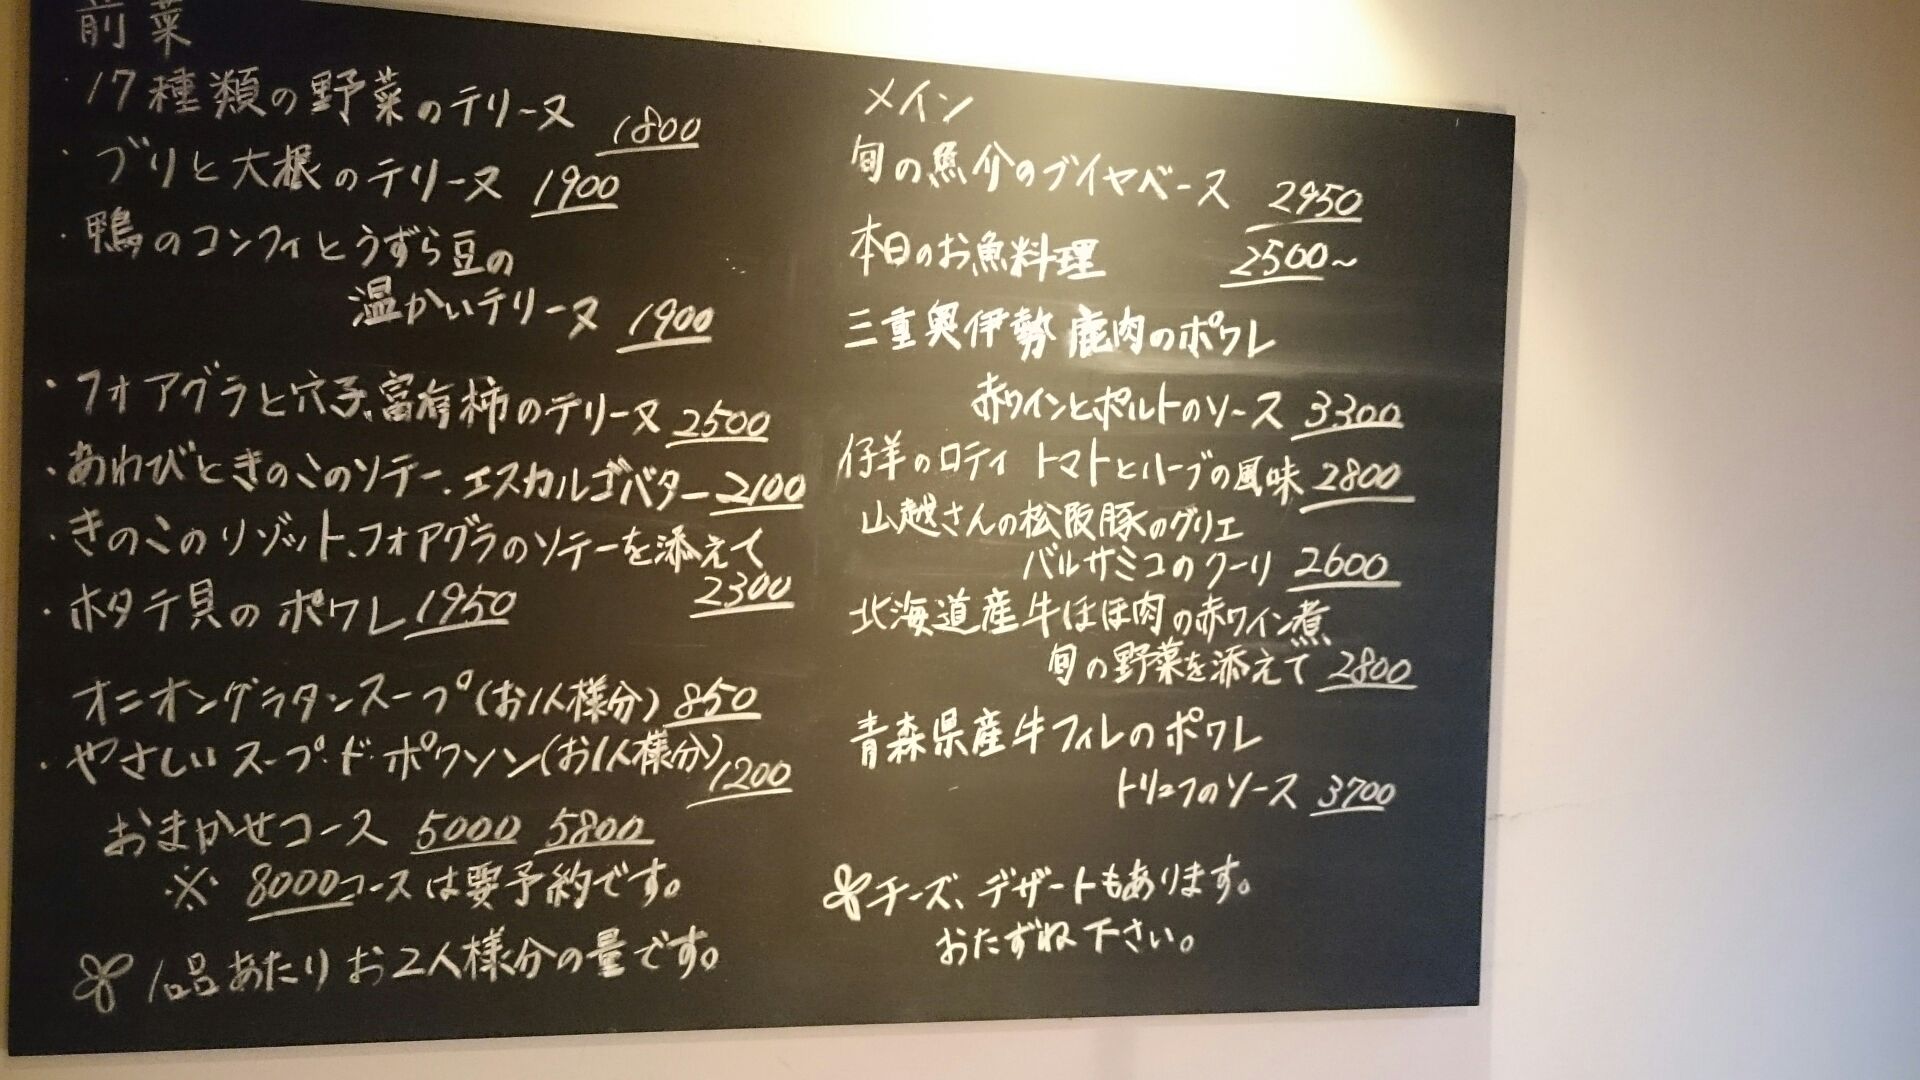 前菜
・17種類の野菜のテリーヌ 1800
・ブリと大根のテリーヌ 1900
・鴨のコンフィとうずら豆の
温かいテリーヌ 1900
・フォアグラと穴子、富有柿のテリーヌ 2500
・あわびときのこのソテー、エスカルゴバター 2100
・きのこのリゾット、フォアグラのソテーを添えて
2300
・ホタテ貝のポワレ 1950
オニオングラタンスープ(お1人様分) 850
・やさしいスープ・ド・ポワソン(お1人様分) 1200
おまかせコース 5000 5800
※ 8000コースは要予約です。
1品あたりお2人様分の量です。
メイン
旬の魚介のブイヤベース 2950
本日のお魚料理 2500~
三重奥伊勢 鹿肉のポワレ
赤ワインとポルトのソース 3300
仔羊のロティ トマトとハーブの風味 2800
山越さんの松阪豚のグリエ
バルサミコのクーリ 2600
北海道産牛ほほ肉の赤ワイン煮
旬の野菜を添えて 2800
青森県産牛フィレのポワレ
トリュフのソース 3700
チーズ、デザートもあります。
おたずね下さい。